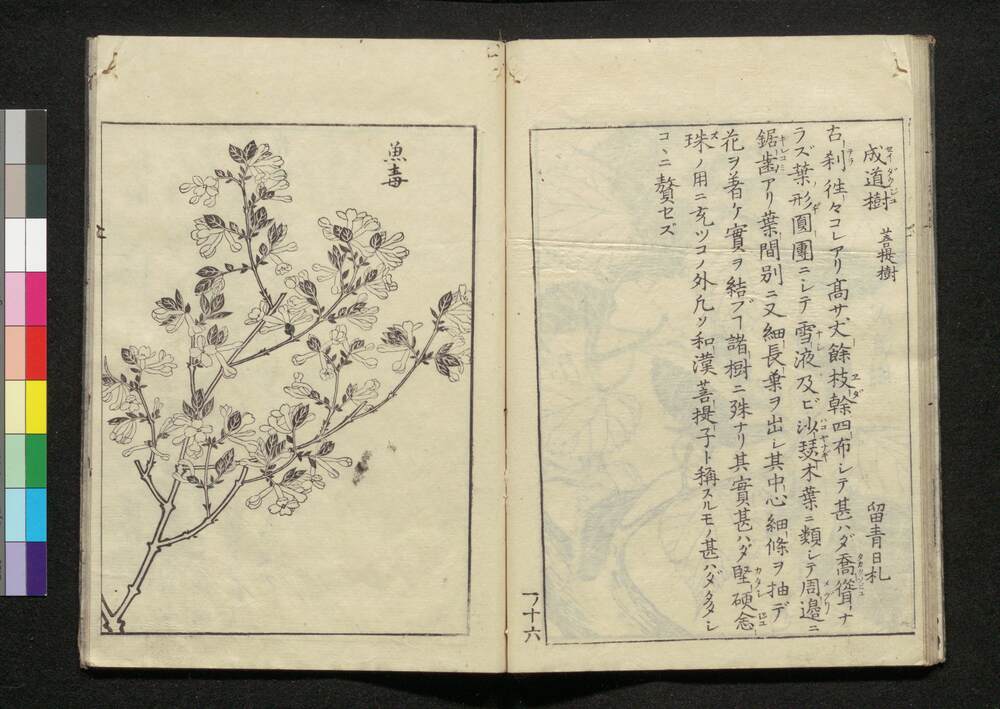 成道樹 菩提樹 留青日札
セイダウジュ
古刹徃々コレアリ高サ丈餘枝幹四布シテ甚ハダ喬聳ナ
ラズ葉形圓團ニシテ雪液及ビ沙瑟木葉ニ類シテ周邊ニ
鋸歯アリ葉間別ニ又細長葉ヲ出シ其中心細條ヲ抽デ
花ヲ着ケ實ヲ結ブヿ諸樹ニ殊ナリ其實甚ハダ堅硬念
珠ノ用ニ充ツコノ外凢ソ和漢菩提子ト稱スルモノ甚ハダ多シ
コヽニ贅セズ
十六
魚毒